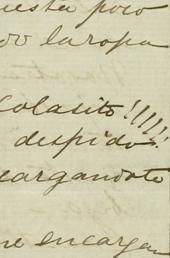 uesta poco
do la ropa
Colasito!!!!!
despido
cargandote
me encargan